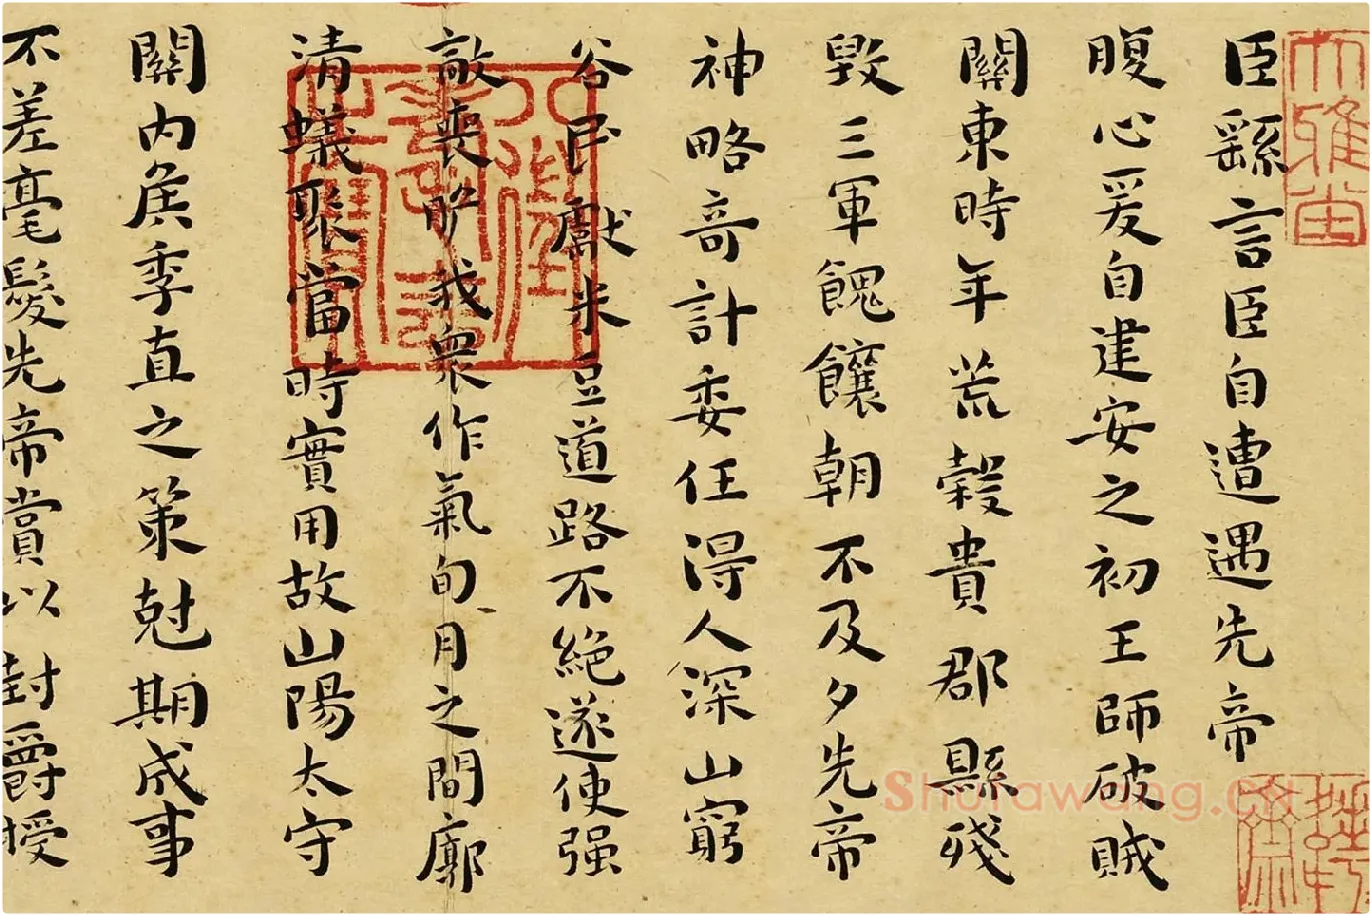 臣繇言臣自遭遇先帝
腹心爰自建安之初王師破賊
關東時年荒穀貴郡縣殘
毀三軍餽饟朝不及夕先帝
神略奇計委任得人深山窮
谷民獻米豆道路不絕遂使强
敵喪膽我衆作氣旬月之間廓
清蟻聚當時實用故山陽太守
關內侯季直之策剋期成事
不差毫髮先帝賞以封爵授
大雅
Shufawang.cn